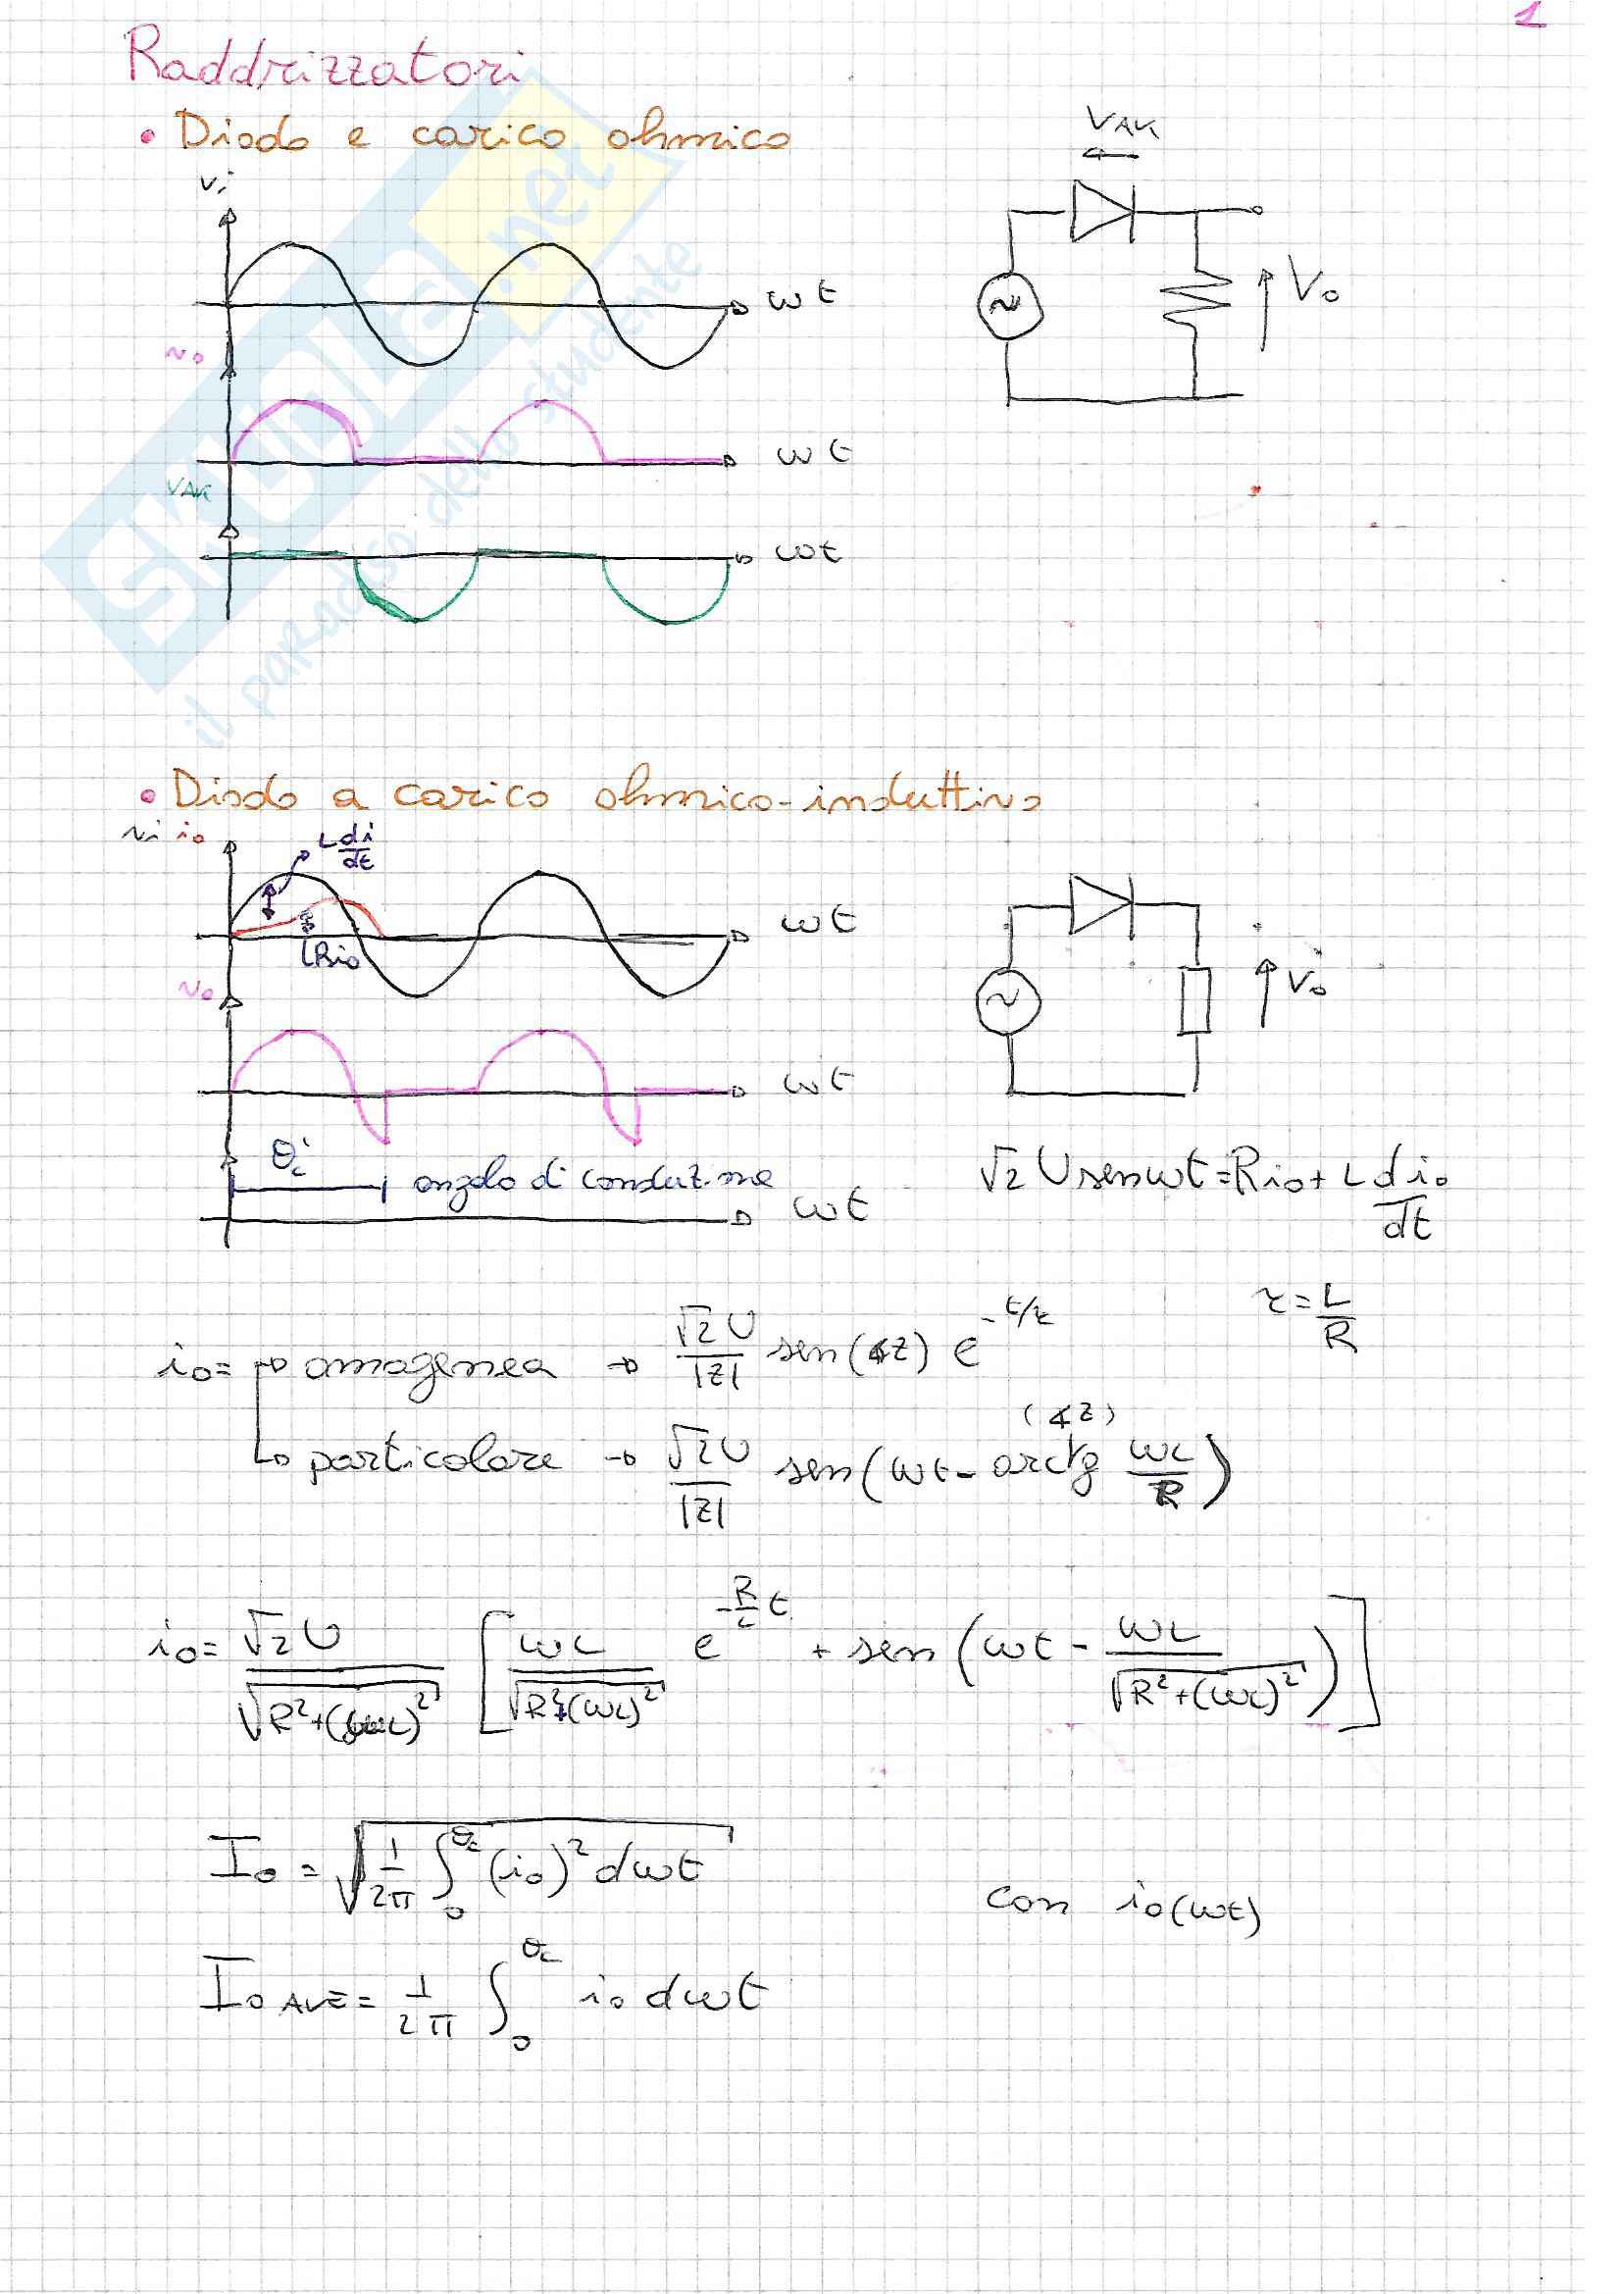 1
Raddrizzatori
• Diodo e carico ohmico
VAK
vi
ωt
Vo
vo
ωt
VAK
ωt
SKUOLA.net
il paradiso dello studente
• Diodo a carico ohmico-induttivo
vi io
L di/dt
ωt
Rio
Vo
vo
ωt
θc
angolo di conduz.ne
ωt
√2 U sen ωt = Rio + L dio/dt
τ = L/R
io = → omogenea → √2U/|Z| sen(∡Z) e^(-t/τ)
(∡Z)
↳ particolare → √2U/|Z| sen(ωt - arctg ωL/R)
io = √2U/√(R²+(ωL)²) [ωL/√(R²+(ωL)²) e^(-R/L t) + sen(ωt - ωL/√(R²+(ωL)²))]
Io = √(1/2π ∫₀^θc (io)² dωt)
con io(ωt)
Io AVE = 1/2π ∫₀^θc io dωt